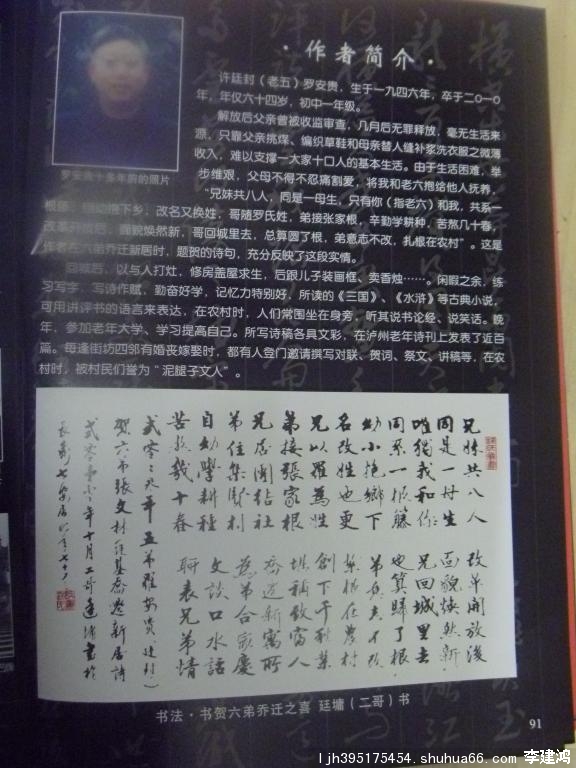 ·作者简介·
许廷封（老五）罗安贵，生于一九四六年，卒于二〇一〇
年，年仅六十四岁，初中一年级。
解放后父亲曾被收监审查，几月后无罪释放，毫无生活来
源，只靠父亲挑煤、编织草鞋和母亲替人缝补浆洗衣服之微薄
收入，难以支撑一大家十口人的基本生活。由于生活困难，举
步维艰，父母不得不忍痛割爱，将我和老六抱给他人抚养，
罗安贵十多年前的照片
“兄妹共八人，同是一母生，只有你（指老六）和我，共系一
下乡，改名又换姓，哥随罗氏姓，弟接张家根，辛勤学耕种，苦熬几十春，
后，面貌焕然新，哥回城里去，总算圆了根，弟意志不改，扎根在农村”。这是
作者在六弟乔迁新居时，题贺的诗句，充分反映了这段实情。
回城后，以与人打灶，修房盖屋求生，后跟儿子装画框，卖香烛……。闲暇之余，练
习写字，写诗作赋，勤奋好学，记忆力特别好，所读的《三国》、《水浒》等古典小说，
可用讲评书的语言来表达，在农村时，人们常围坐在身旁，听其说书论经、说笑话。晚
年，参加老年大学、学习提高自己。所写诗稿各具文彩，在泸州老年诗刊上发表了近百
篇。每逢街坊四邻有婚丧嫁娶时，都有人登门邀请撰写对联、贺词、祭文、讲稿等，在农
村时，被村民们誉为“泥腿子文人”。
兄妹共八人
同是一母生
唯独我和你
同系一根藤
幼小抱乡下
名改姓也更
兄以罗为姓
弟接张家根
兄居团结社
弟住集贤村
自幼学耕种
苦熬几十春
改革开放后
面貌焕然新
兄回城里去
也算归了根
弟
扎根在农村
创下千秋业
堪称致富人
乔迁新寓所
为弟合家庆
文谈口水话
聊表兄弟情
贰零零 年五弟罗安贵（廷封）
贺六弟张文 乔迁新居诗
年十月二哥廷墉书于
书法·书贺六弟乔迁之喜 廷墉（二哥）书
91
ljh395175454.shuhua66.com 李建鸿